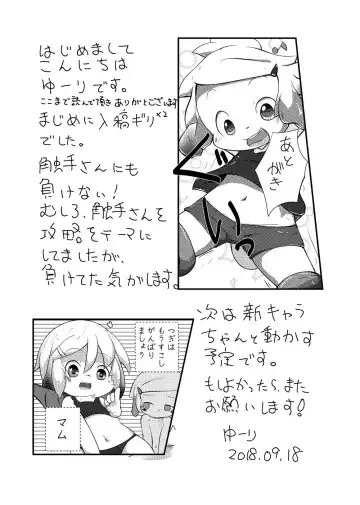 はじめまして
こんにちは
ゆーりです。
ここまで読んで頂きありがとうございます
まじめに入稿ギリ×2
でした。
触手さんにも
負けない！
むしろ、触手さんを
攻略をテーマに
してましたが、
負けてた気がします。
あとがき
つぎは
もうすこし
がんばり
ましょう
マム
次は新キャラ
ちゃんと動かす
予定です。
もしよかったら、また
お願いします！
ゆーり
2018.09.18